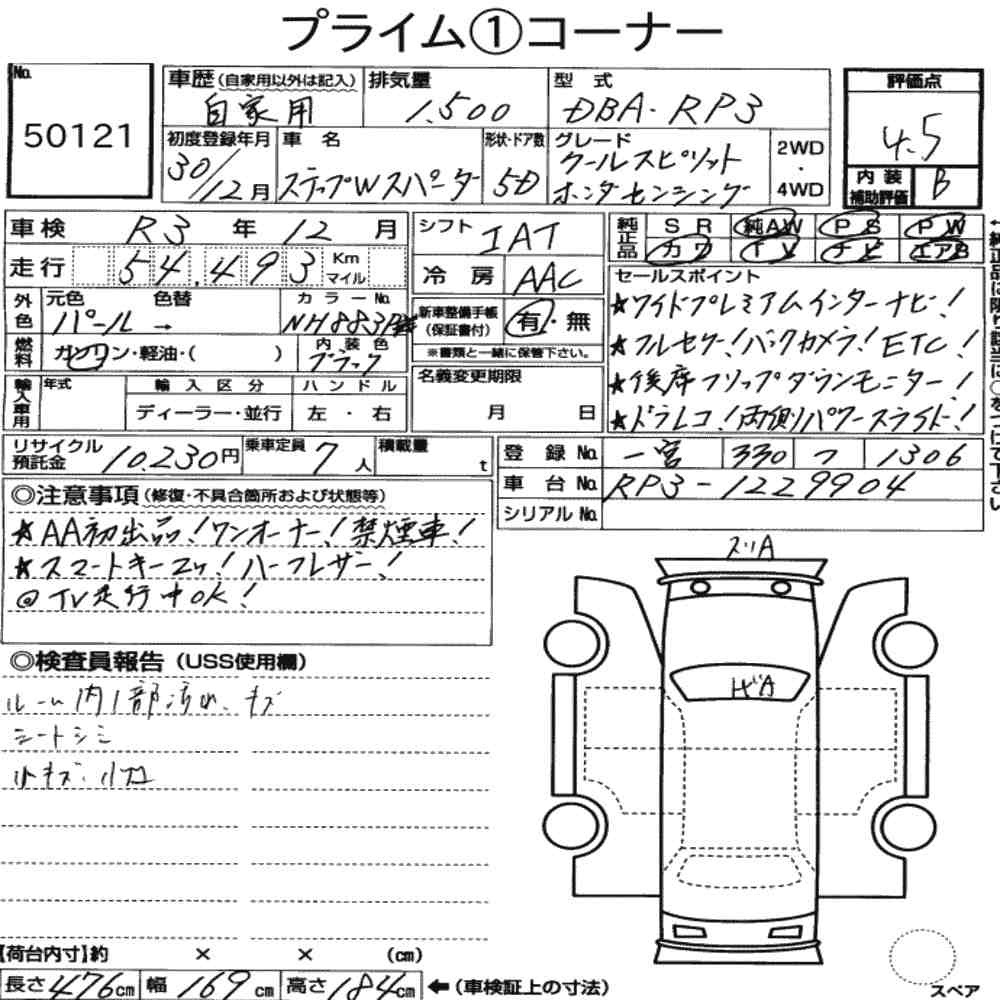 プライム①コーナー
No.
50121
車歴（自家用以外は記入）
自家用
排気量
1.500
型式
DBA-RP3
評価点
4.5
内装
補助評価
B
初度登録年月
30/12月
車名
ステップWスパーダ
形状・ドア数
5D
グレード
クールスピリット
ホンダセンシング
2WD
・
4WD
車検 R3 年 12 月
走行 54,493 Km
マイル
シフト IAT
冷房 AAC
純正品
SR 純AW PS PW
カワ TV ナビ エアB
外色
元色 色替
パール →
カラーNo.
NH883P
燃料
ガソリン・軽油・( )
内装色
ブラック
新車整備手帳
（保証書付）
有・無
※書類と一緒に保管下さい。
セールスポイント
★ワイドプレミアムインターナビ！
★フルセグ！バックカメラ！ETC！
★後席フリップダウンモニター！
★ドラレコ！両側パワースライド！
輸入車用
年式
輸入区分
ディーラー・並行
ハンドル
左・右
名義変更期限
月 日
リサイクル
預託金
10.230円
乗車定員 7人
積載量 t
登録No. 一宮 330 つ 1306
車台No. RP3-1229904
シリアルNo.
◎注意事項（修復・不具合箇所および状態等）
★AA初出品！ワンオーナー！禁煙車！
★スマートキー2ヶ！ハーフレザー！
@TV走行中OK！
◎検査員報告（USS使用欄）
ルーム内1部汚れ、キズ
シートシミ
小キズ・小凹
スリA
ガA
【荷台内寸】約 × × (cm)
長さ476cm 幅169cm 高さ184cm ←（車検証上の寸法）
スペア